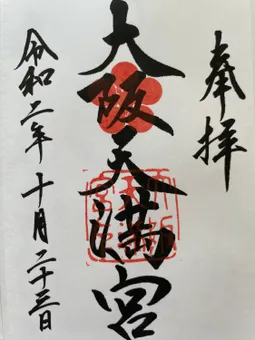 奉拝
大阪天満宮
令和二年十月二十三日